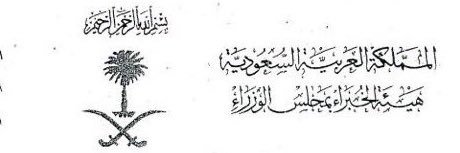 بسم الله الرحمن الرحيم
المملكة العربية السعودية
هيئة الخبراء بمجلس الوزراء